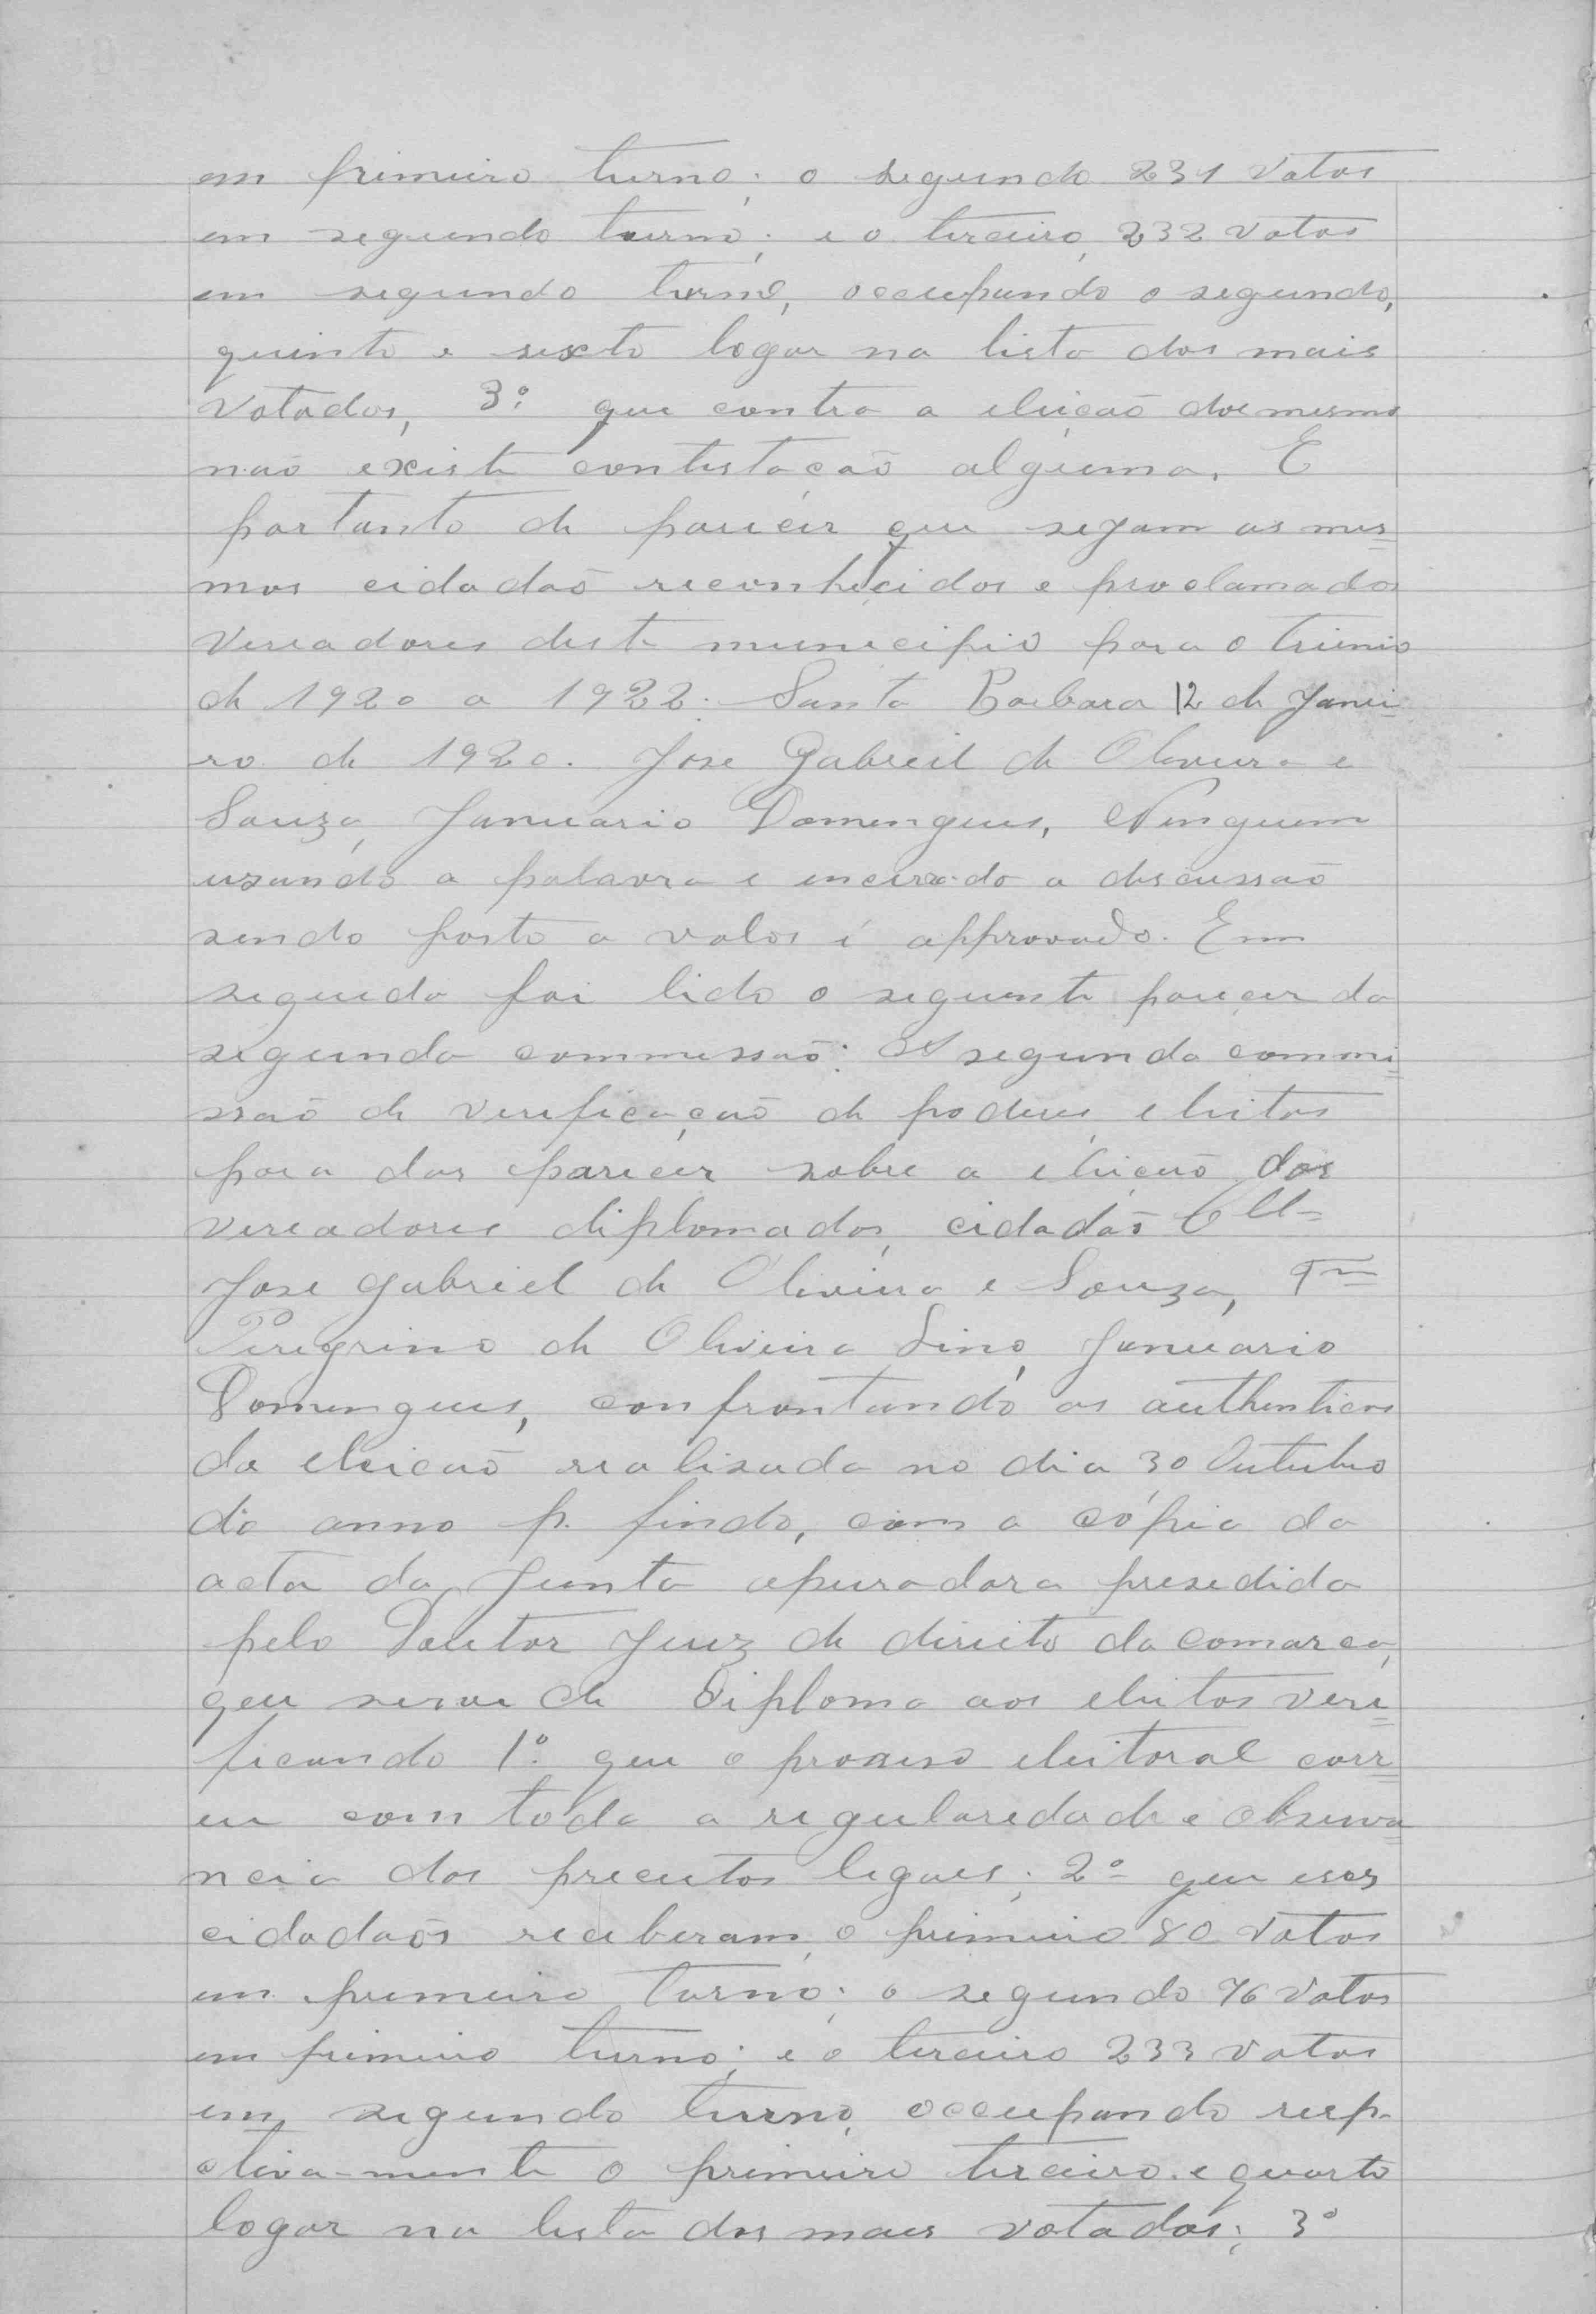 em primeiro turno; o segundo 231 votos
em segundo turno; e o terceiro, 232 votos
em segundo turno, occupando o segundo,
quinto e sexto logar na lista dos mais
votados, 3º que contra a eleição dos mesmo
não existe contestação alguma. E
portanto de parecer que sejam os mes=
mos cidadão reconhecidos e proclamados
vereadores deste municipio para o trienio
de 1920 a 1922. Santa Barbara 12 de Janei=
ro de 1920. Jose Gabriel de Oliveira e
Souza, Januario Domingues, Ninguem
usando a palavra e encerrado a discussão
sendo posto a votos é approvado. Em
seguida foi lido o seguinte parecer da
segunda commissão: A segunda commi=
ssão de verificação de poderes, eleitos
para dar parecer sobre a eleição dos
vereadores diplomados, cidadãs Cel
Jose Gabriel de Oliveira e Souza, Tn
Peregrino de Oliveira Lino, Januario
Domingues, confrontando as authenticas
da eleição realisada no dia 30 Outubro
do anno p. findo, com a cópia da
acta da Junta apuradora presedida
pelo Doutor Juiz de direito da comarca,
que serve de Diploma aos eleitos veri=
ficando 1º que o processo eleitoral corr=
eu com toda a regularedade e observa=
ncia dos preceitos legaes; 2º que esses
cidadaõs receberam, o primeiro 80 votos
em primeiro turno; o segundo 76 votos
em primeiro turno; e o terceiro 233 votos
em segundo turno, occupando resp-
ctiva-mente o primeiro terceiro e quarto
logar na lista dos mais votados; 3º